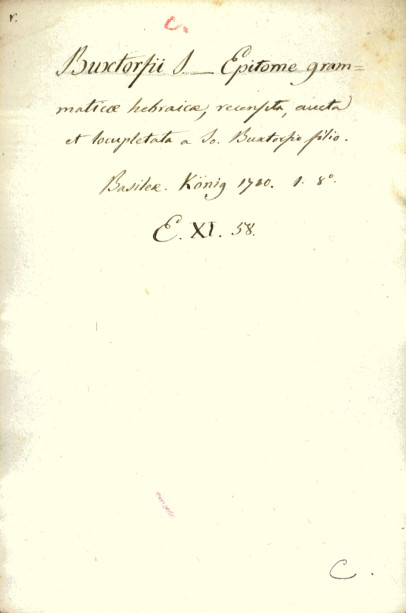 r.
C.
Buxtorfii J. — Epitome gram=
maticæ hebraicæ, recensita, aucta
et locupletata a Jo. Buxtorfio filio.
Basileæ. König 1710. 1. 8°.
E. XI. 58.
C.